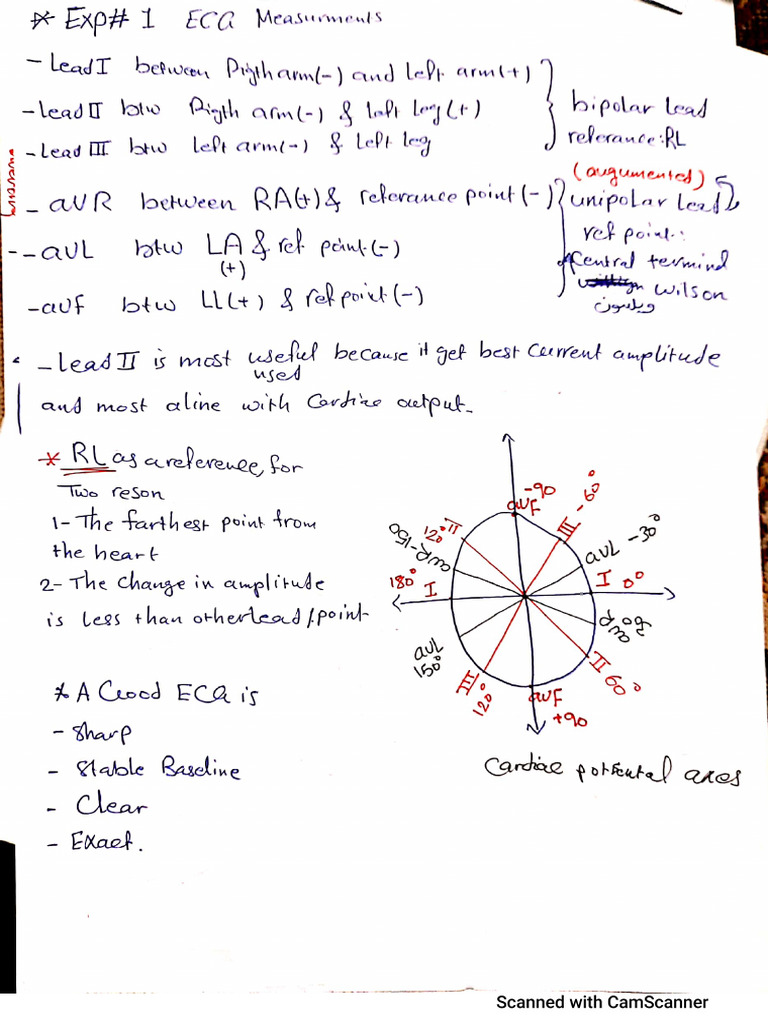 * Exp# 1 ECG Measurments
- Lead I between Rigth arm(-) and left arm(+)
- lead II btw Rigth arm(-) & left leg(+)
- Lead III btw left arm(-) & left leg
bipolar lead
referance: RL
(augumented)
- aVR between RA(+) & referance point(-)
unipolar lead
ref point:
- aVL btw LA & ref point(-)
(+)
Central termind
Wilson
ويلسون
- avf btw LL(+) & ref point(-)
- Lead II is most useful because it get best current amplitude
used
and most aline with Cardiac output.
* RL as a reference, for
Two reson
1- The farthest point from
the heart
2- The change in amplitude
is less than other lead/point
-90
avF
III -60°
aVL -30°
I 0°
avR
II 60°
avF
+90
III
120°
aVL
150°
180° I
avR -150
120° II
Cardiac potential axes
* A Good ECG is
- Sharp
- Stable Baseline
- Clear
- Exact.
Scanned with CamScanner